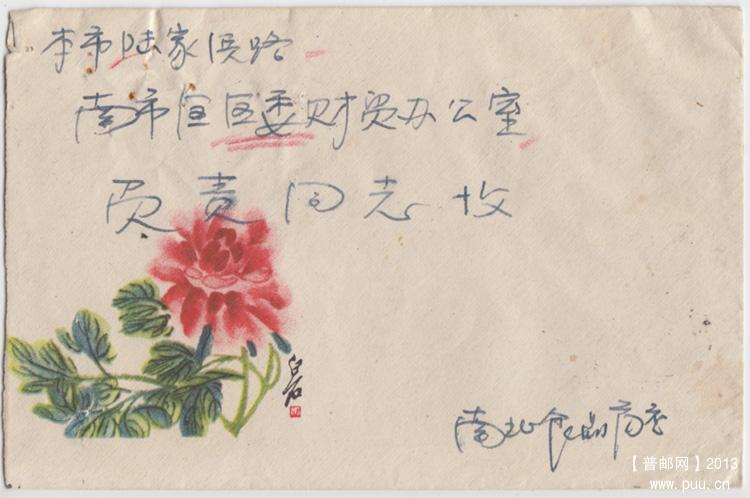 本市陆家浜路
南市区区委财贸办公室
负责同志收
白石
南北食品商店
【普邮网】2013
www.puu.cn